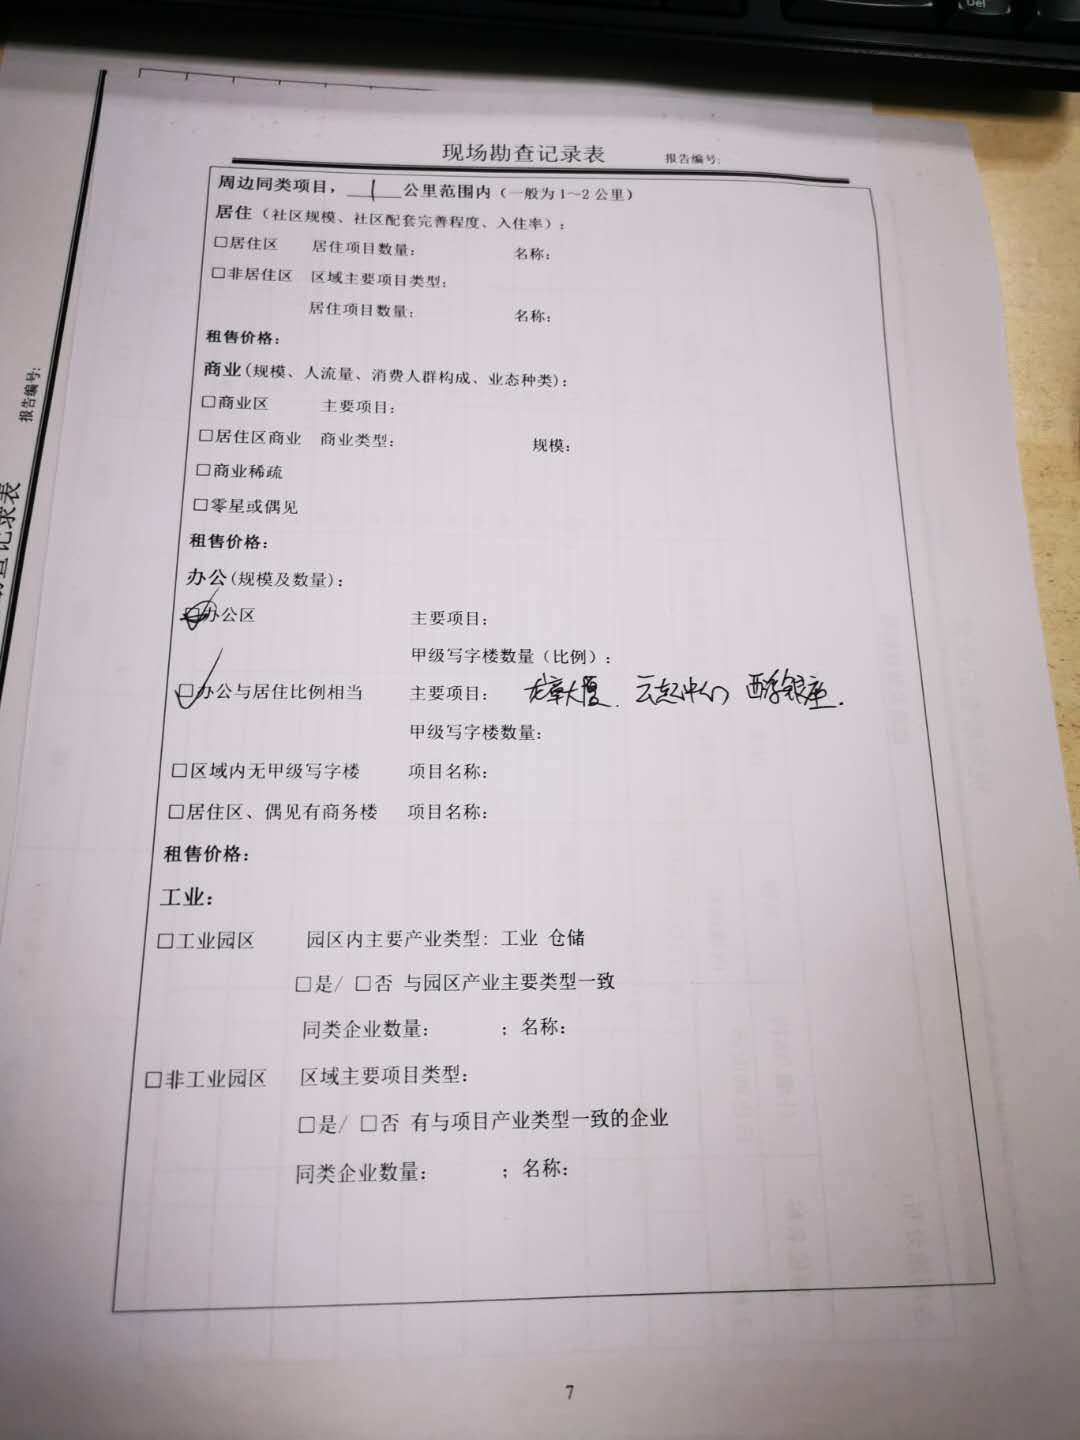 Del
现场勘查记录表 报告编号:
周边同类项目，1公里范围内（一般为1~2公里）
居住（社区规模、社区配套完善程度、入住率）:
□居住区 居住项目数量: 名称:
□非居住区 区域主要项目类型:
居住项目数量: 名称:
租售价格:
商业(规模、人流量、消费人群构成、业态种类):
□商业区 主要项目:
□居住区商业 商业类型: 规模:
□商业稀疏
□零星或偶见
租售价格:
办公(规模及数量):
□办公区 主要项目:
甲级写字楼数量（比例）:
☑办公与居住比例相当 主要项目: 龙章大厦、云起中心 西银座.
甲级写字楼数量:
□区域内无甲级写字楼 项目名称:
□居住区、偶见有商务楼 项目名称:
租售价格:
工业:
□工业园区 园区内主要产业类型: 工业 仓储
□是/ □否 与园区产业主要类型一致
同类企业数量: ；名称:
□非工业园区 区域主要项目类型:
□是/ □否 有与项目产业类型一致的企业
同类企业数量: ；名称:
7
报告编号:
记录表